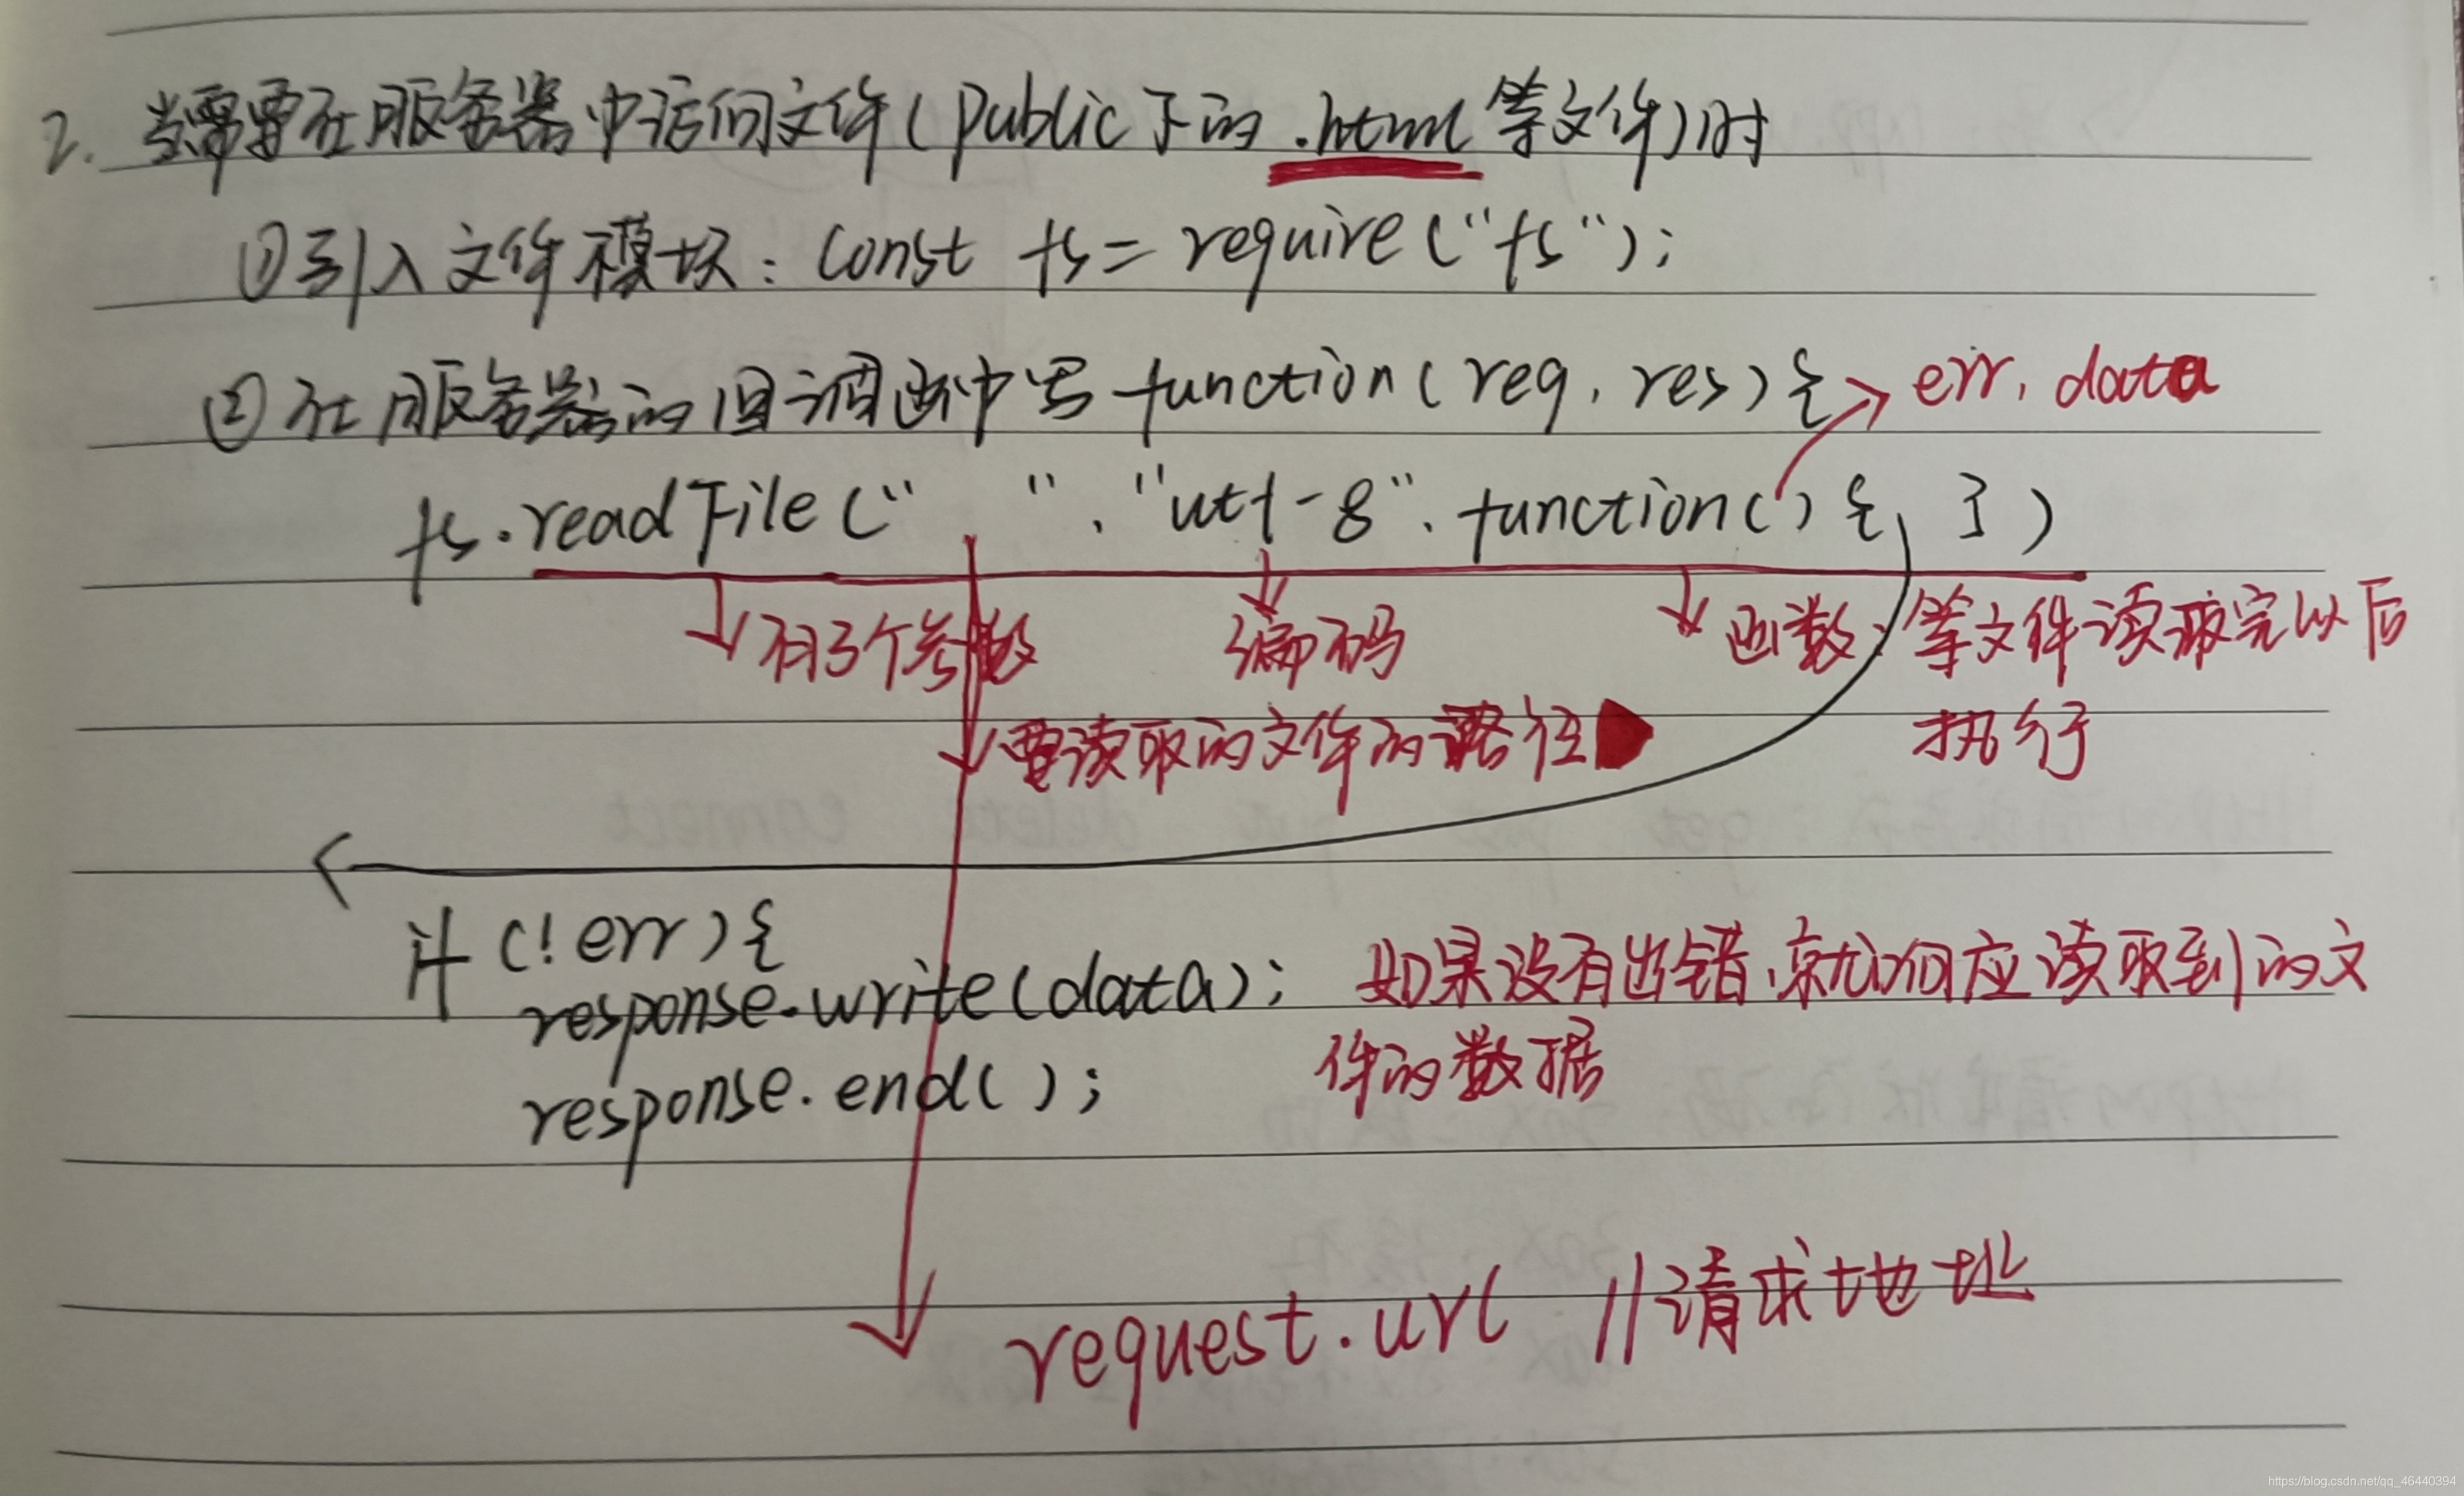 2. 当需要在服务器中访问文件(public下的.html等文件)时
①引入文件模块: const fs = require("fs");
②在服务器的回调函中写 function(req, res){ err, data
fs.readFile(" ", "utf-8", function(){ })
有3个参数 编码 函数,等文件读取完以后
要读取的文件的路径 执行
if(!err){
response.write(data); 如果没有出错,就响应读取到的文
件的数据
response.end();
request.url //请求地址
https://blog.csdn.net/qq_46440394